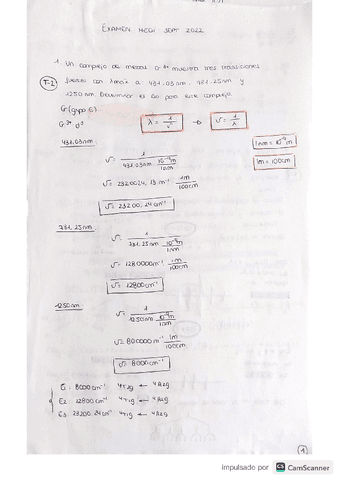 EXAMEN MEQI SEPT 2022
1. Un complejo de metal d³⁺ muestra tres transiciones
T-2
fuertes con λmax a: 431.03nm, 781.25nm y
1250nm. Determinar el Δo para este complejo.
Cr (grupo 6)
Cr³⁺ d³
λ = 1/ν → ν = 1/λ
1nm = 10⁻⁹m
1m = 100cm
431.03nm
ν = 1 / 431.03nm 10⁻⁹m/1nm
ν = 2320024,13 m⁻¹ 1m/100cm
ν = 23200,24 cm⁻¹
781.25nm
ν = 1 / 781.25nm 10⁻⁹m/1nm
ν = 1280000m⁻¹ 1m/100cm
ν = 12800cm⁻¹
1250nm
ν = 1 / 1250nm 10⁻⁹m/1nm
ν = 800000 m⁻¹ 1m/100cm
ν = 8000cm⁻¹
E1: 8000cm⁻¹ 4T2g ← 4A2g
E2: 12800cm⁻¹ 4T1g ← 4A2g
E3: 23200.24cm⁻¹ 4T1g ← 4A2g
1
impulsado por CS CamScanner